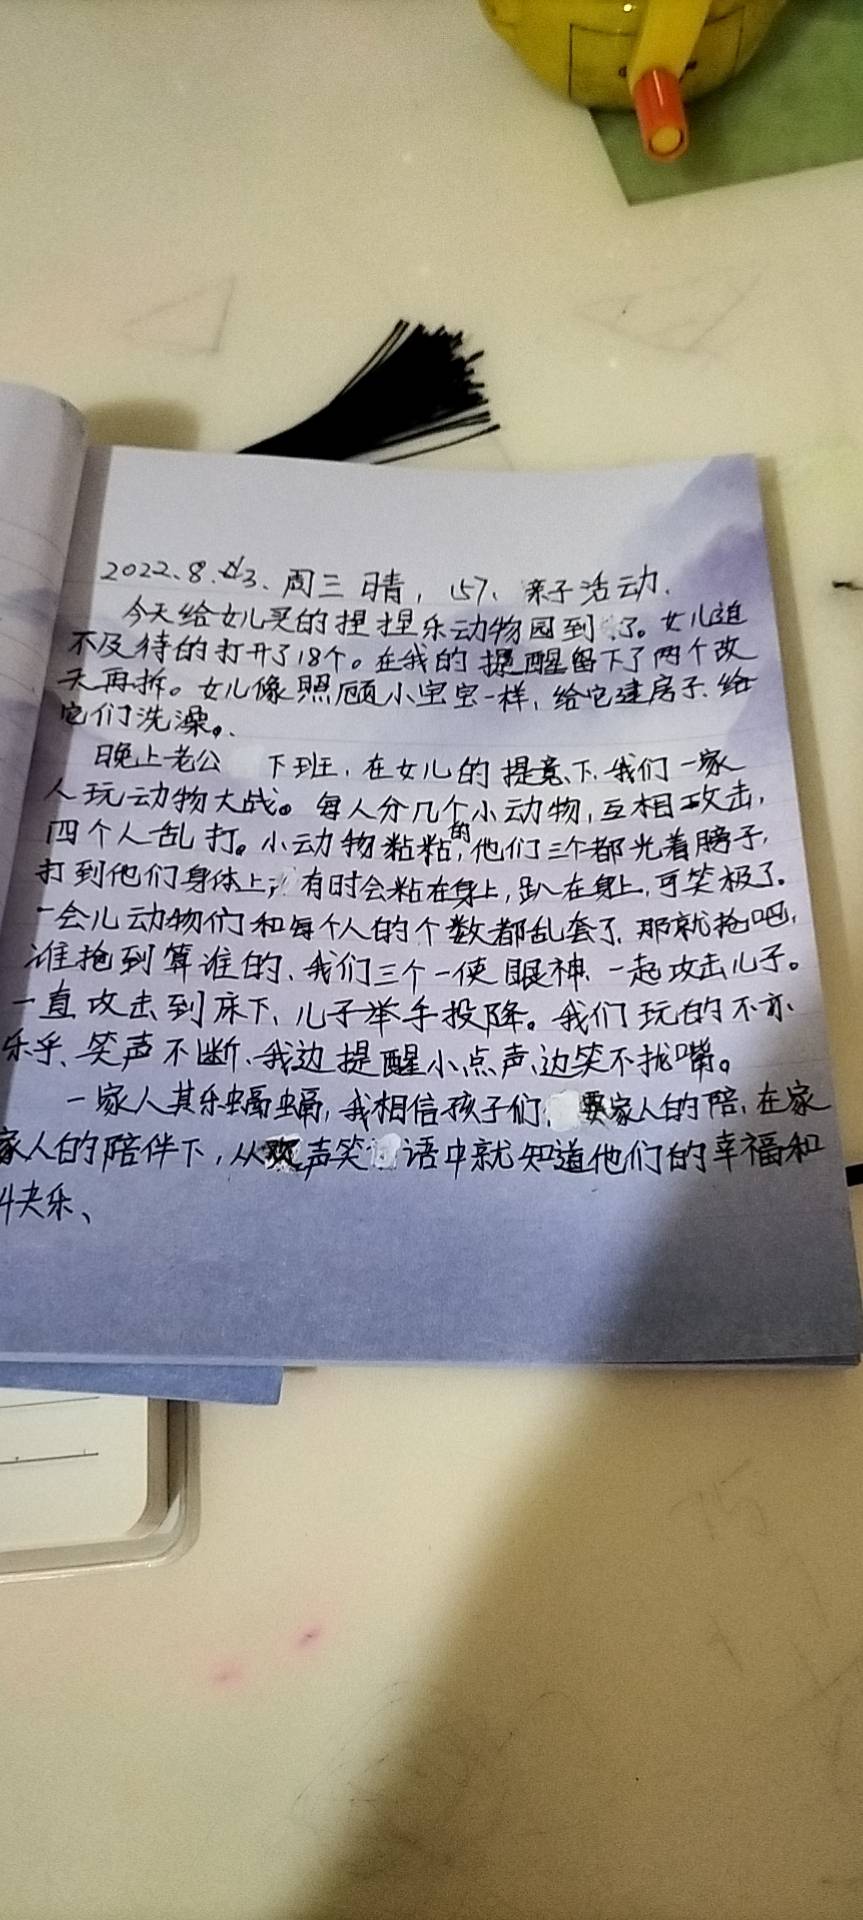 2022、8、3、周三 晴，157、亲子活动.
今天给女儿买的捏捏乐动物园到了。女儿迫
不及待的打开了18个。在我的提醒留下了两个改
天再拆。女儿像照顾小宝宝一样，给它建房子、给
它们洗澡。
晚上老公下班，在女儿的提意下、我们一家
人玩动物大战。每人分几个小动物，互相攻击，
四个人乱打。小动物粘粘的，他们三个都光着膀子，
打到他们身体上，有时会粘在身上，趴在身上，可笑极了。
一会儿动物们和每个人的个数都乱套了、那就抢吧，
谁抢到算谁的、我们三个一使眼神、一起攻击儿子。
一直攻击到床下、儿子举手投降。我们玩的不亦
乐乎、笑声不断、我边提醒小点声、边笑不拢嘴。
一家人其乐螎螎，我相信孩子们要家人的陪，在家
家人的陪伴下，从欢声笑语中就知道他们的幸福和
快乐、